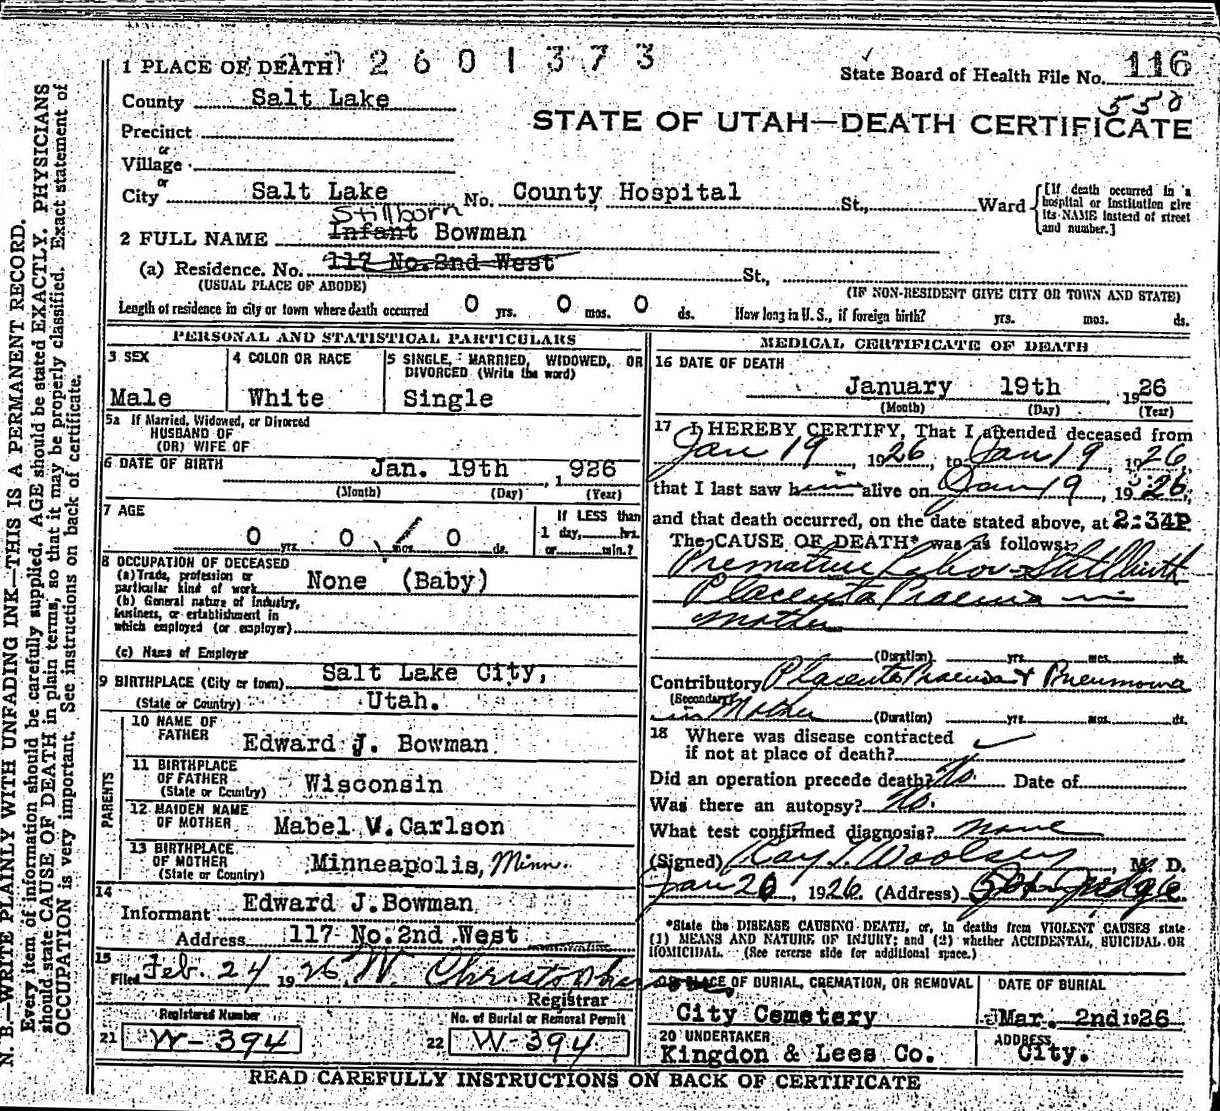 1 PLACE OF DEATH 2601373
State Board of Health File No. 116
550
County Salt Lake
STATE OF UTAH—DEATH CERTIFICATE
Precinct
or
Village
or
City Salt Lake No. County Hospital St., Ward
[If death occurred in a hospital or institution give its NAME instead of street and number.]
Stillborn
2 FULL NAME Infant Bowman
(a) Residence. No. 117 No. 2nd West St.,
(USUAL PLACE OF ABODE) (IF NON-RESIDENT GIVE CITY OR TOWN AND STATE)
Length of residence in city or town where death occurred 0 yrs. 0 mos. 0 ds. How long in U. S., if foreign birth? yrs. mos. ds.
PERSONAL AND STATISTICAL PARTICULARS
3 SEX
Male
4 COLOR OR RACE
White
5 SINGLE, MARRIED, WIDOWED, OR
DIVORCED (Write the word)
Single
5a If Married, Widowed, or Divorced
HUSBAND OF
(OR) WIFE OF
6 DATE OF BIRTH Jan. 19th, 1926
(Month) (Day) (Year)
7 AGE
0 yrs. 0 mos. 0 ds.
If LESS than
1 day, hrs.
or min.?
8 OCCUPATION OF DECEASED
(a) Trade, profession or
particular kind of work None (Baby)
(b) General nature of industry,
business, or establishment in
which employed (or employer)
(c) Name of Employer
9 BIRTHPLACE (City or town) Salt Lake City,
(State or Country) Utah.
PARENTS
10 NAME OF
FATHER Edward J. Bowman
11 BIRTHPLACE
OF FATHER Wisconsin
(State or Country)
12 MAIDEN NAME
OF MOTHER Mabel V. Carlson
13 BIRTHPLACE
OF MOTHER Minneapolis, Minn.
(State or Country)
14
Informant Edward J. Bowman
Address 117 No. 2nd West
15
Filed Feb. 24 1926 W Christophers
Registrar
Registered Number
21 W-394
No. of Burial or Removal Permit
22 W-394
MEDICAL CERTIFICATE OF DEATH
16 DATE OF DEATH
January 19th 1926
(Month) (Day) (Year)
17 I HEREBY CERTIFY, That I attended deceased from
Jan 19, 1926, to Jan 19, 1926,
that I last saw him alive on Jan 19, 1926,
and that death occurred, on the date stated above, at 2:34P
The CAUSE OF DEATH* was as follows:
Premature Labor - Stillbirth
Placenta Praevia in
Mother
(Duration) yrs. mos. ds.
Contributory Placenta Praevia & Pneumonia
(Secondary)
in Mother (Duration) yrs. mos. ds.
18 Where was disease contracted
if not at place of death?
Did an operation precede death? No. Date of
Was there an autopsy? No.
What test confirmed diagnosis? none
(Signed) Ray T. Woolsey, M. D.
Jan 20, 1926 (Address)
*State the DISEASE CAUSING DEATH, or, in deaths from VIOLENT CAUSES state
(1) MEANS AND NATURE OF INJURY; and (2) whether ACCIDENTAL, SUICIDAL OR
HOMICIDAL. (See reverse side for additional space.)
PLACE OF BURIAL, CREMATION, OR REMOVAL
City Cemetery
DATE OF BURIAL
Mar. 2nd 1926
20 UNDERTAKER
Kingdon & Lees Co.
ADDRESS
City.
READ CAREFULLY INSTRUCTIONS ON BACK OF CERTIFICATE
N. B.—WRITE PLAINLY WITH UNFADING INK—THIS IS A PERMANENT RECORD.
Every item of information should be carefully supplied. AGE should be stated EXACTLY. PHYSICIANS
should state CAUSE OF DEATH in plain terms, so that it may be properly classified. Exact statement of
OCCUPATION is very important. See instructions on back of certificate.